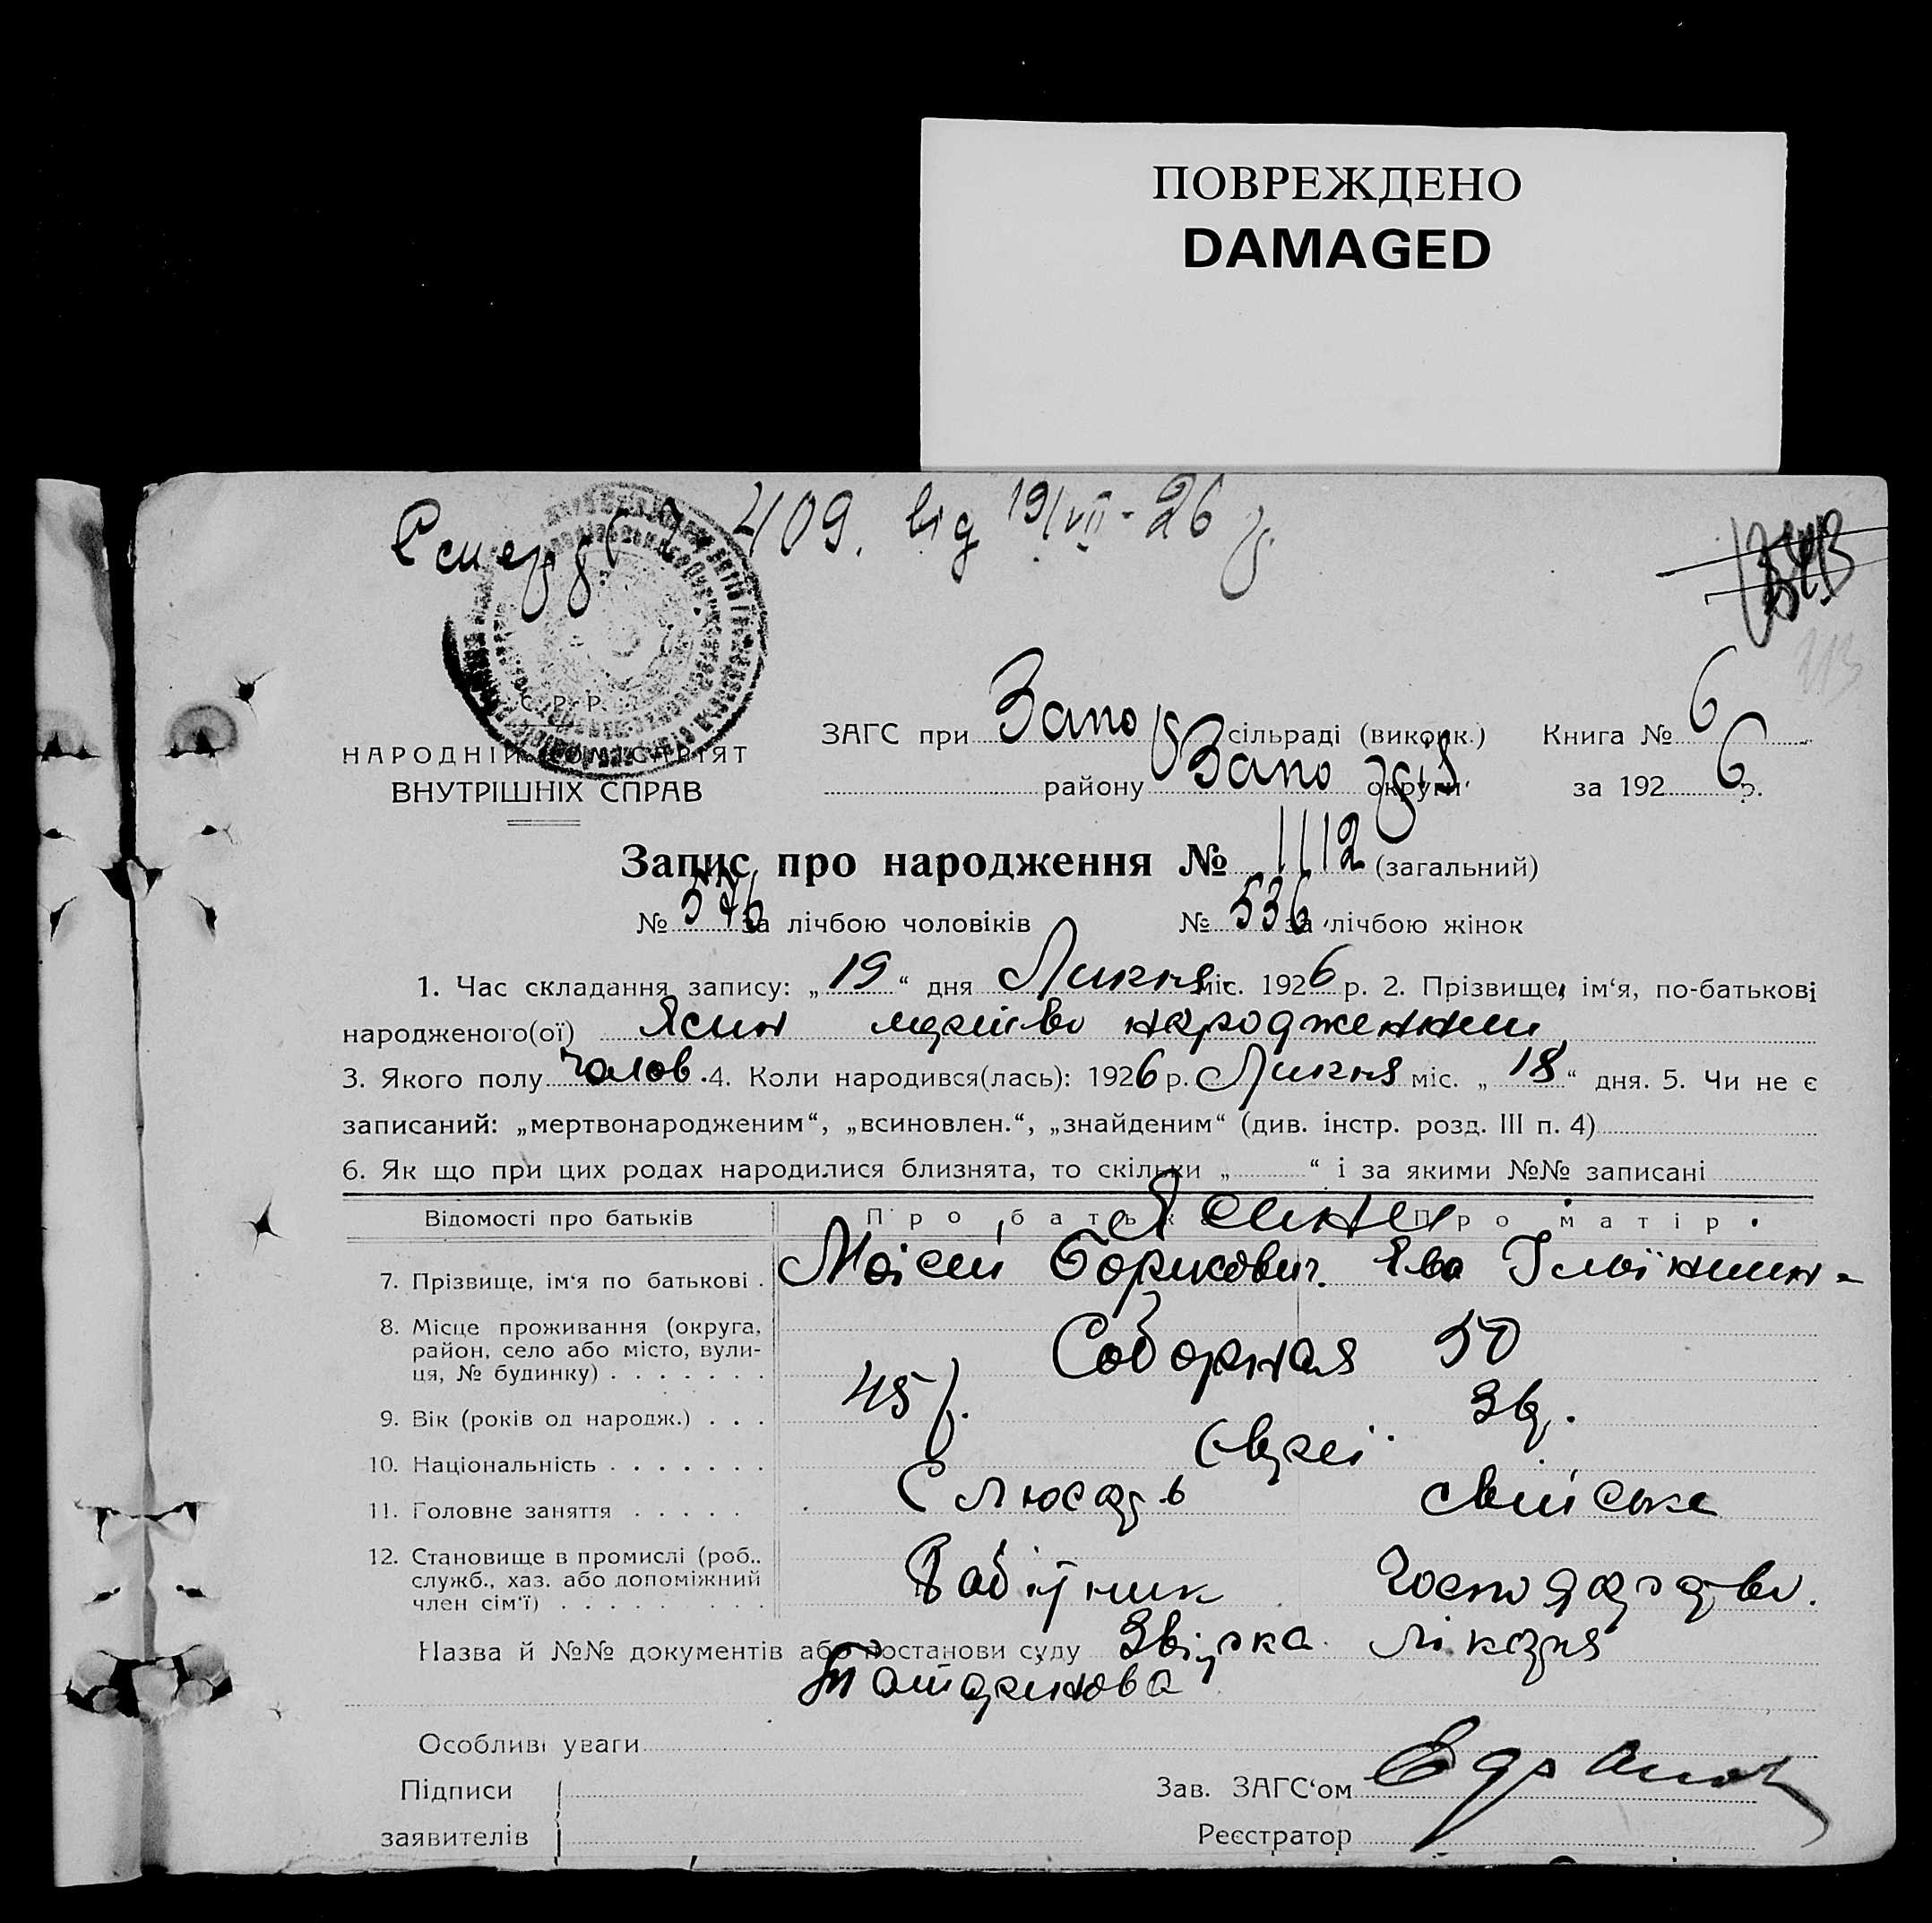 ПОВРЕЖДЕНО
DAMAGED
409. від 19/VII-26 р.
С.Р.Р.
НАРОДНІЙ КОМІСАРІЯТ
ВНУТРІШНІХ СПРАВ
ЗАГС при Запо сільраді (виконк.) Книга № 6
району Запоріз округи за 1926 р.
Запис про народження № 1112 (загальний)
№ 576 за лічбою чоловіків № 536 за лічбою жінок
1. Час складання запису: „19“ дня Липня міс. 1926 р. 2. Прізвище, ім‘я, по-батькові
народженого(ої) Ясин мертво народженний
3. Якого полу чолов. 4. Коли народився(лась): 1926 р. Липня міс. „18“ дня. 5. Чи не є
записаний: „мертвонародженим“, „всиновлен.“, „знайденим“ (див. інстр. розд. III п. 4)
6. Як що при цих родах народилися близнята, то скільки „ “ і за якими №№ записані
Відомості про батьків Про батька Про матір
Ясини
7. Прізвище, ім‘я по батькові . Мойсей Борисович. Ева
8. Місце проживання (округа,
район, село або місто, вули-
ця, № будинку) . . . . . . . Соборная 50
9. Вік (років од народж.) . . . 45 р. 39 р.
10. Національність . . . . . . . Євреї.
11. Головне заняття . . . . . Слюсарь свійське
12. Становище в промислі (роб..
служб., хаз. або допоміжний
член сім‘ї) . . . . . . . . . Робітник господарство.
Назва й №№ документів або постанови суду Звірка лікаря
Особливі уваги
Підписи
заявителів
Зав. ЗАГС‘ом
Реєстратор